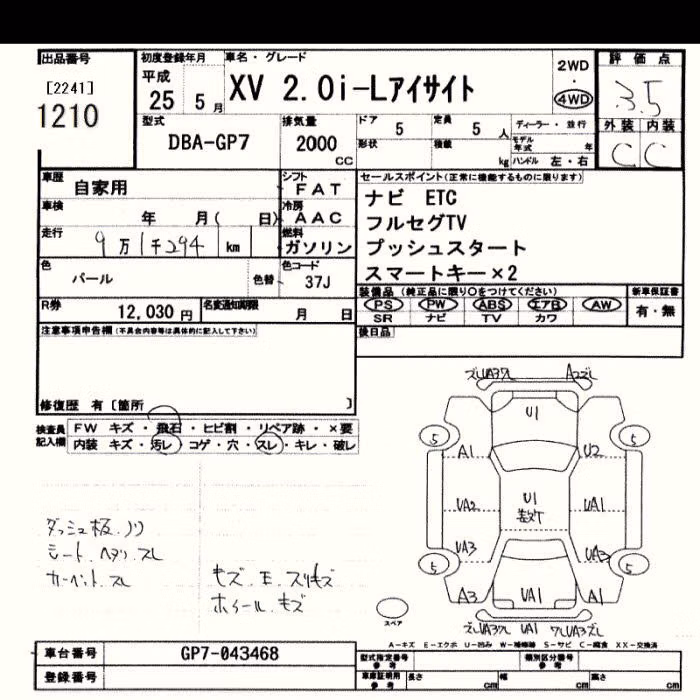 出品番号
[2241]
1210
初度登録年月
平成
25 5 月
車名・グレード
XV 2.0i-Lアイサイト
2WD
・
4WD
評価点
3.5
外装 内装
C C
型式
DBA-GP7
排気量
2000
CC
ドア 5
形状
定員 5 人
積載 kg
ディーラー・並行
モデル年式 年
ハンドル 左・右
車歴
自家用
シフト
FAT
車検
年 月( 日)
冷房
AAC
走行
9万1千294 km
燃料
ガソリン
色
パール
色替
色コード
37J
R券
12,030 円
名変通知期限
月 日
セールスポイント(正常に機能するものに限ります)
ナビ ETC
フルセグTV
プッシュスタート
スマートキー×2
装備品(純正品に限り○をつけてください)
新車保証書
PS PW ABS エアB AW
SR ナビ TV カワ
有・無
後日品
注意事項申告欄(不具合内容等は具体的に記入して下さい)
修復歴 有[箇所 ]
検査員記入欄
FW キズ・飛石・ヒビ割・リペア跡・×要
内装 キズ・汚レ・コゲ・穴・スレ・キレ・破レ
ダッシュ板.ノリ
シート.ヘタリ.スレ
カーペット.スレ
キズ.E.スリキズ
ホイール.キズ
A2ズレ
U1
5 5
A1 U2
UA2 U1 UA1
UA3 UA3
5 5
A3 UA1 A1
UA1
スペア
A-キズ E-エクボ U-凹み W-補修跡 S-サビ C-腐食 XX-交換済
車台番号
GP7-043468
登録番号
型式指定番号
参考
類別区分番号
参考
車庫証明用
参考
長さ cm
幅 cm
高さ cm